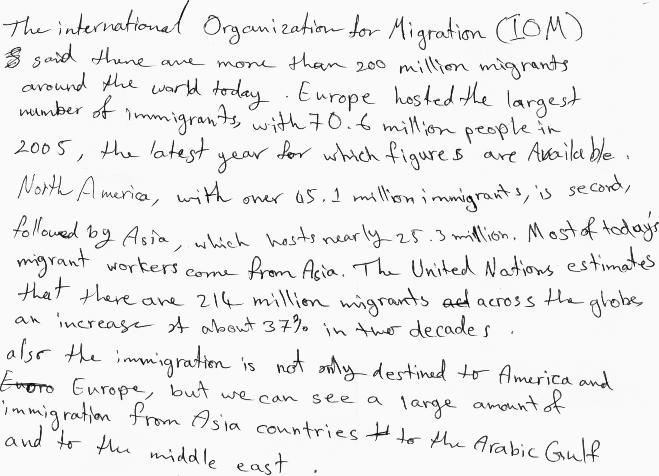 The international Organization for Migration (IOM)
said there are more than 200 million migrants
around the world today. Europe hosted the largest
number of immigrants, with 70.6 million people in
2005, the latest year for which figures are Available.
North America, with over 45.1 million immigrants, is second,
followed by Asia, which hosts nearly 25.3 million. Most of today's
migrant workers come from Asia. The United Nations estimates
that there are 214 million migrants across the globe,
an increase of about 37% in two decades.
also the immigration is not only destined to America and
Europe, but we can see a large amount of
immigration from Asia countries to the Arabic Gulf
and to the middle east.